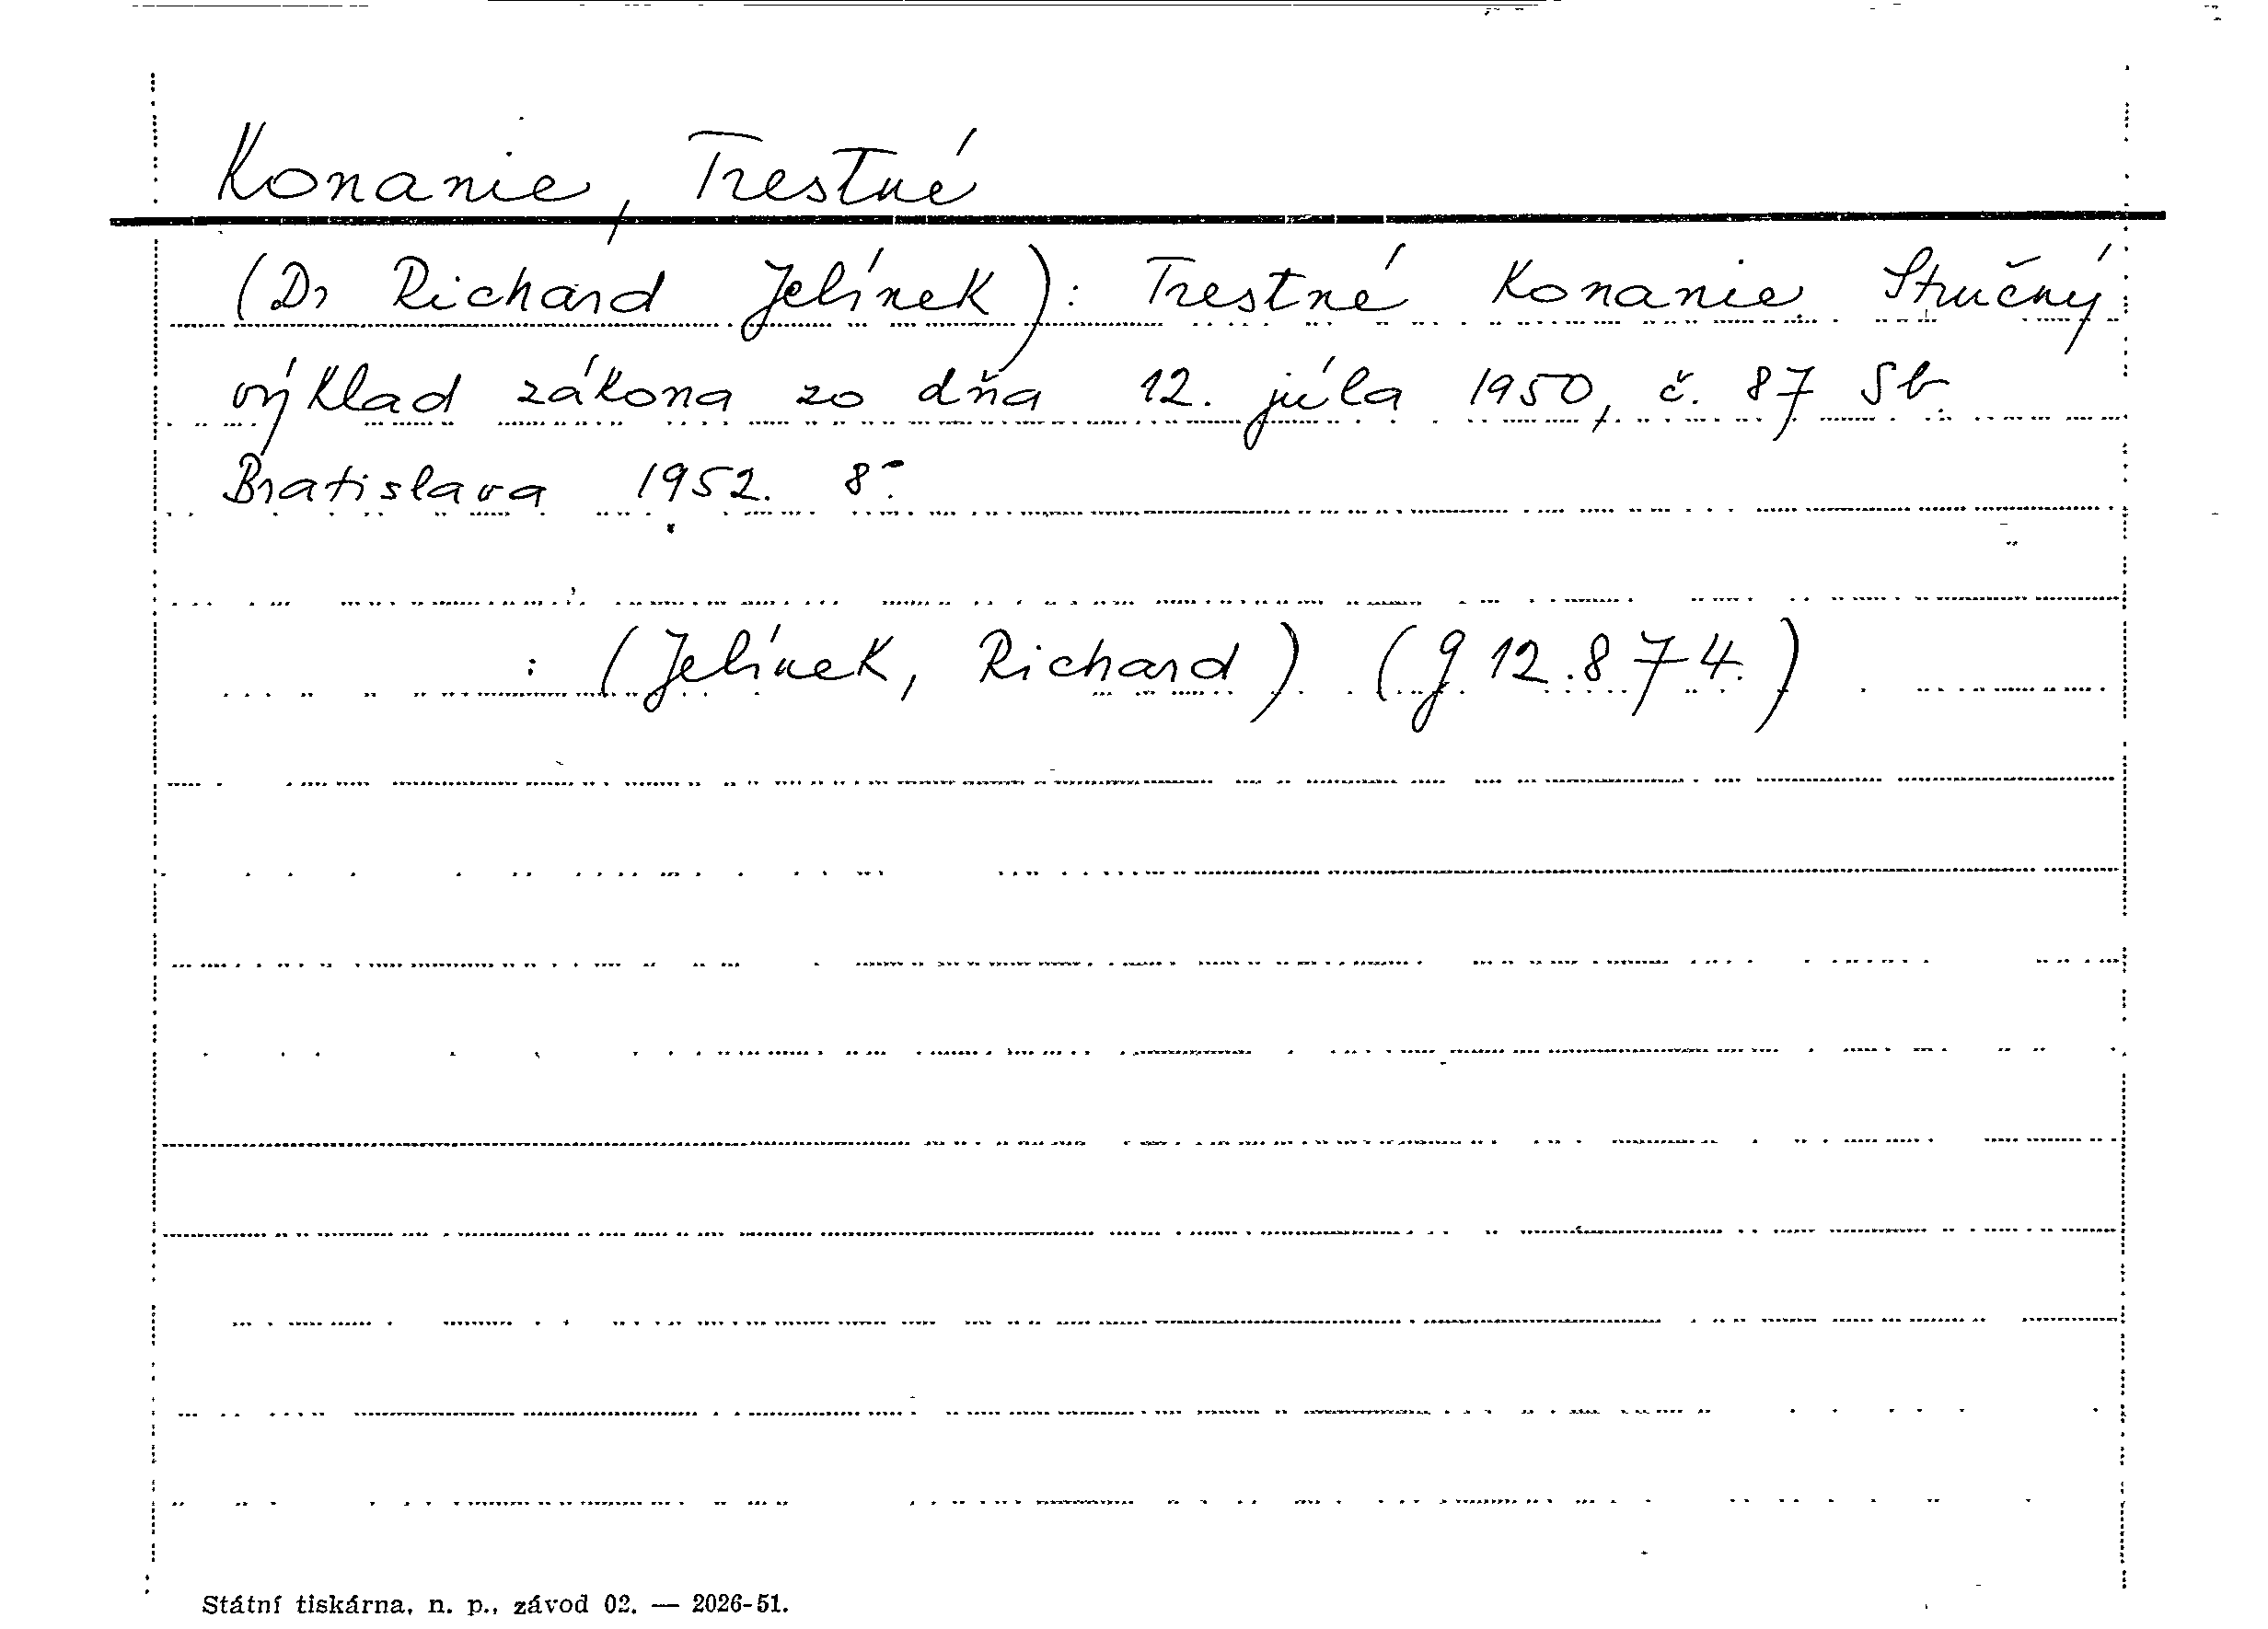 Konanie, Trestné
(Dr Richard Jelínek): Trestné konanie. Stručný
výklad zákona zo dňa 12. júla 1950, č. 87 Sb.
Bratislava 1952. 8°.
: (Jelínek, Richard) (g 12.874.)
Státní tiskárna, n. p., závod 02. — 2026-51.